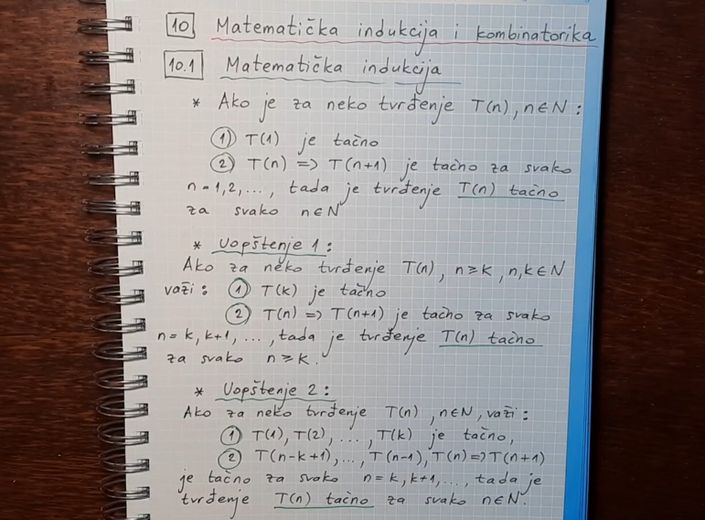 10 Matematička indukcija i kombinatorika
10.1 Matematička indukcija
* Ako je za neko tvrđenje T(n), n∈N:
① T(1) je tačno
② T(n) => T(n+1) je tačno za svako
n=1,2,..., tada je tvrđenje T(n) tačno
za svako n∈N
* Uopštenje 1:
Ako za neko tvrđenje T(n), n≥k, n,k∈N
važi: ① T(k) je tačno
② T(n) => T(n+1) je tačno za svako
n=k, k+1, ..., tada je tvrđenje T(n) tačno
za svako n≥k.
* Uopštenje 2:
Ako za neko tvrđenje T(n), n∈N, važi:
① T(1), T(2), ..., T(k) je tačno,
② T(n-k+1), ..., T(n-1), T(n) => T(n+1)
je tačno za svako n=k, k+1, ..., tada je
tvrđenje T(n) tačno za svako n∈N.